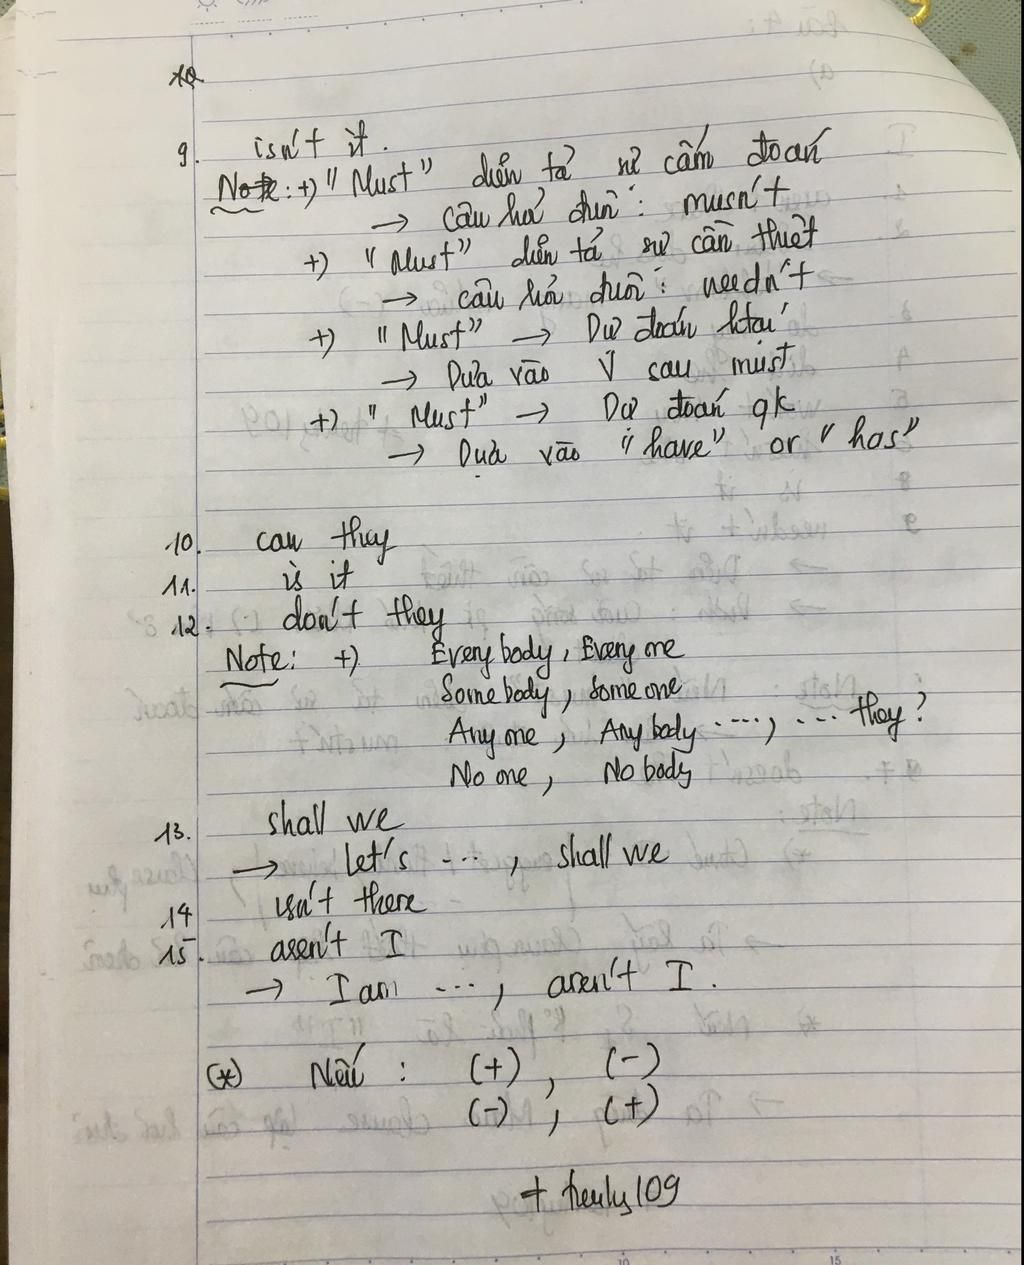 9. isn't it.
Note: +) "Must" diễn tả sự cấm đoán
→ câu hỏi đuôi: musn't
+) "Must" diễn tả sự cần thiết
→ câu hỏi đuôi: needn't
+) "Must" → Dự đoán htại
→ Dựa vào V sau must
+) "Must" → Dự đoán qk
→ Dựa vào "have" or "has"
10. can they
11. is it
12. don't they
Note: +) Every body, Every one
Some body, Some one
Any one, Any body ...., ... they?
No one, No body
13. shall we
→ Let's ..., shall we
14 isn't there
15. aren't I
→ I am ..., aren't I.
(*) Nếu: (+), (-)
(-), (+)
109